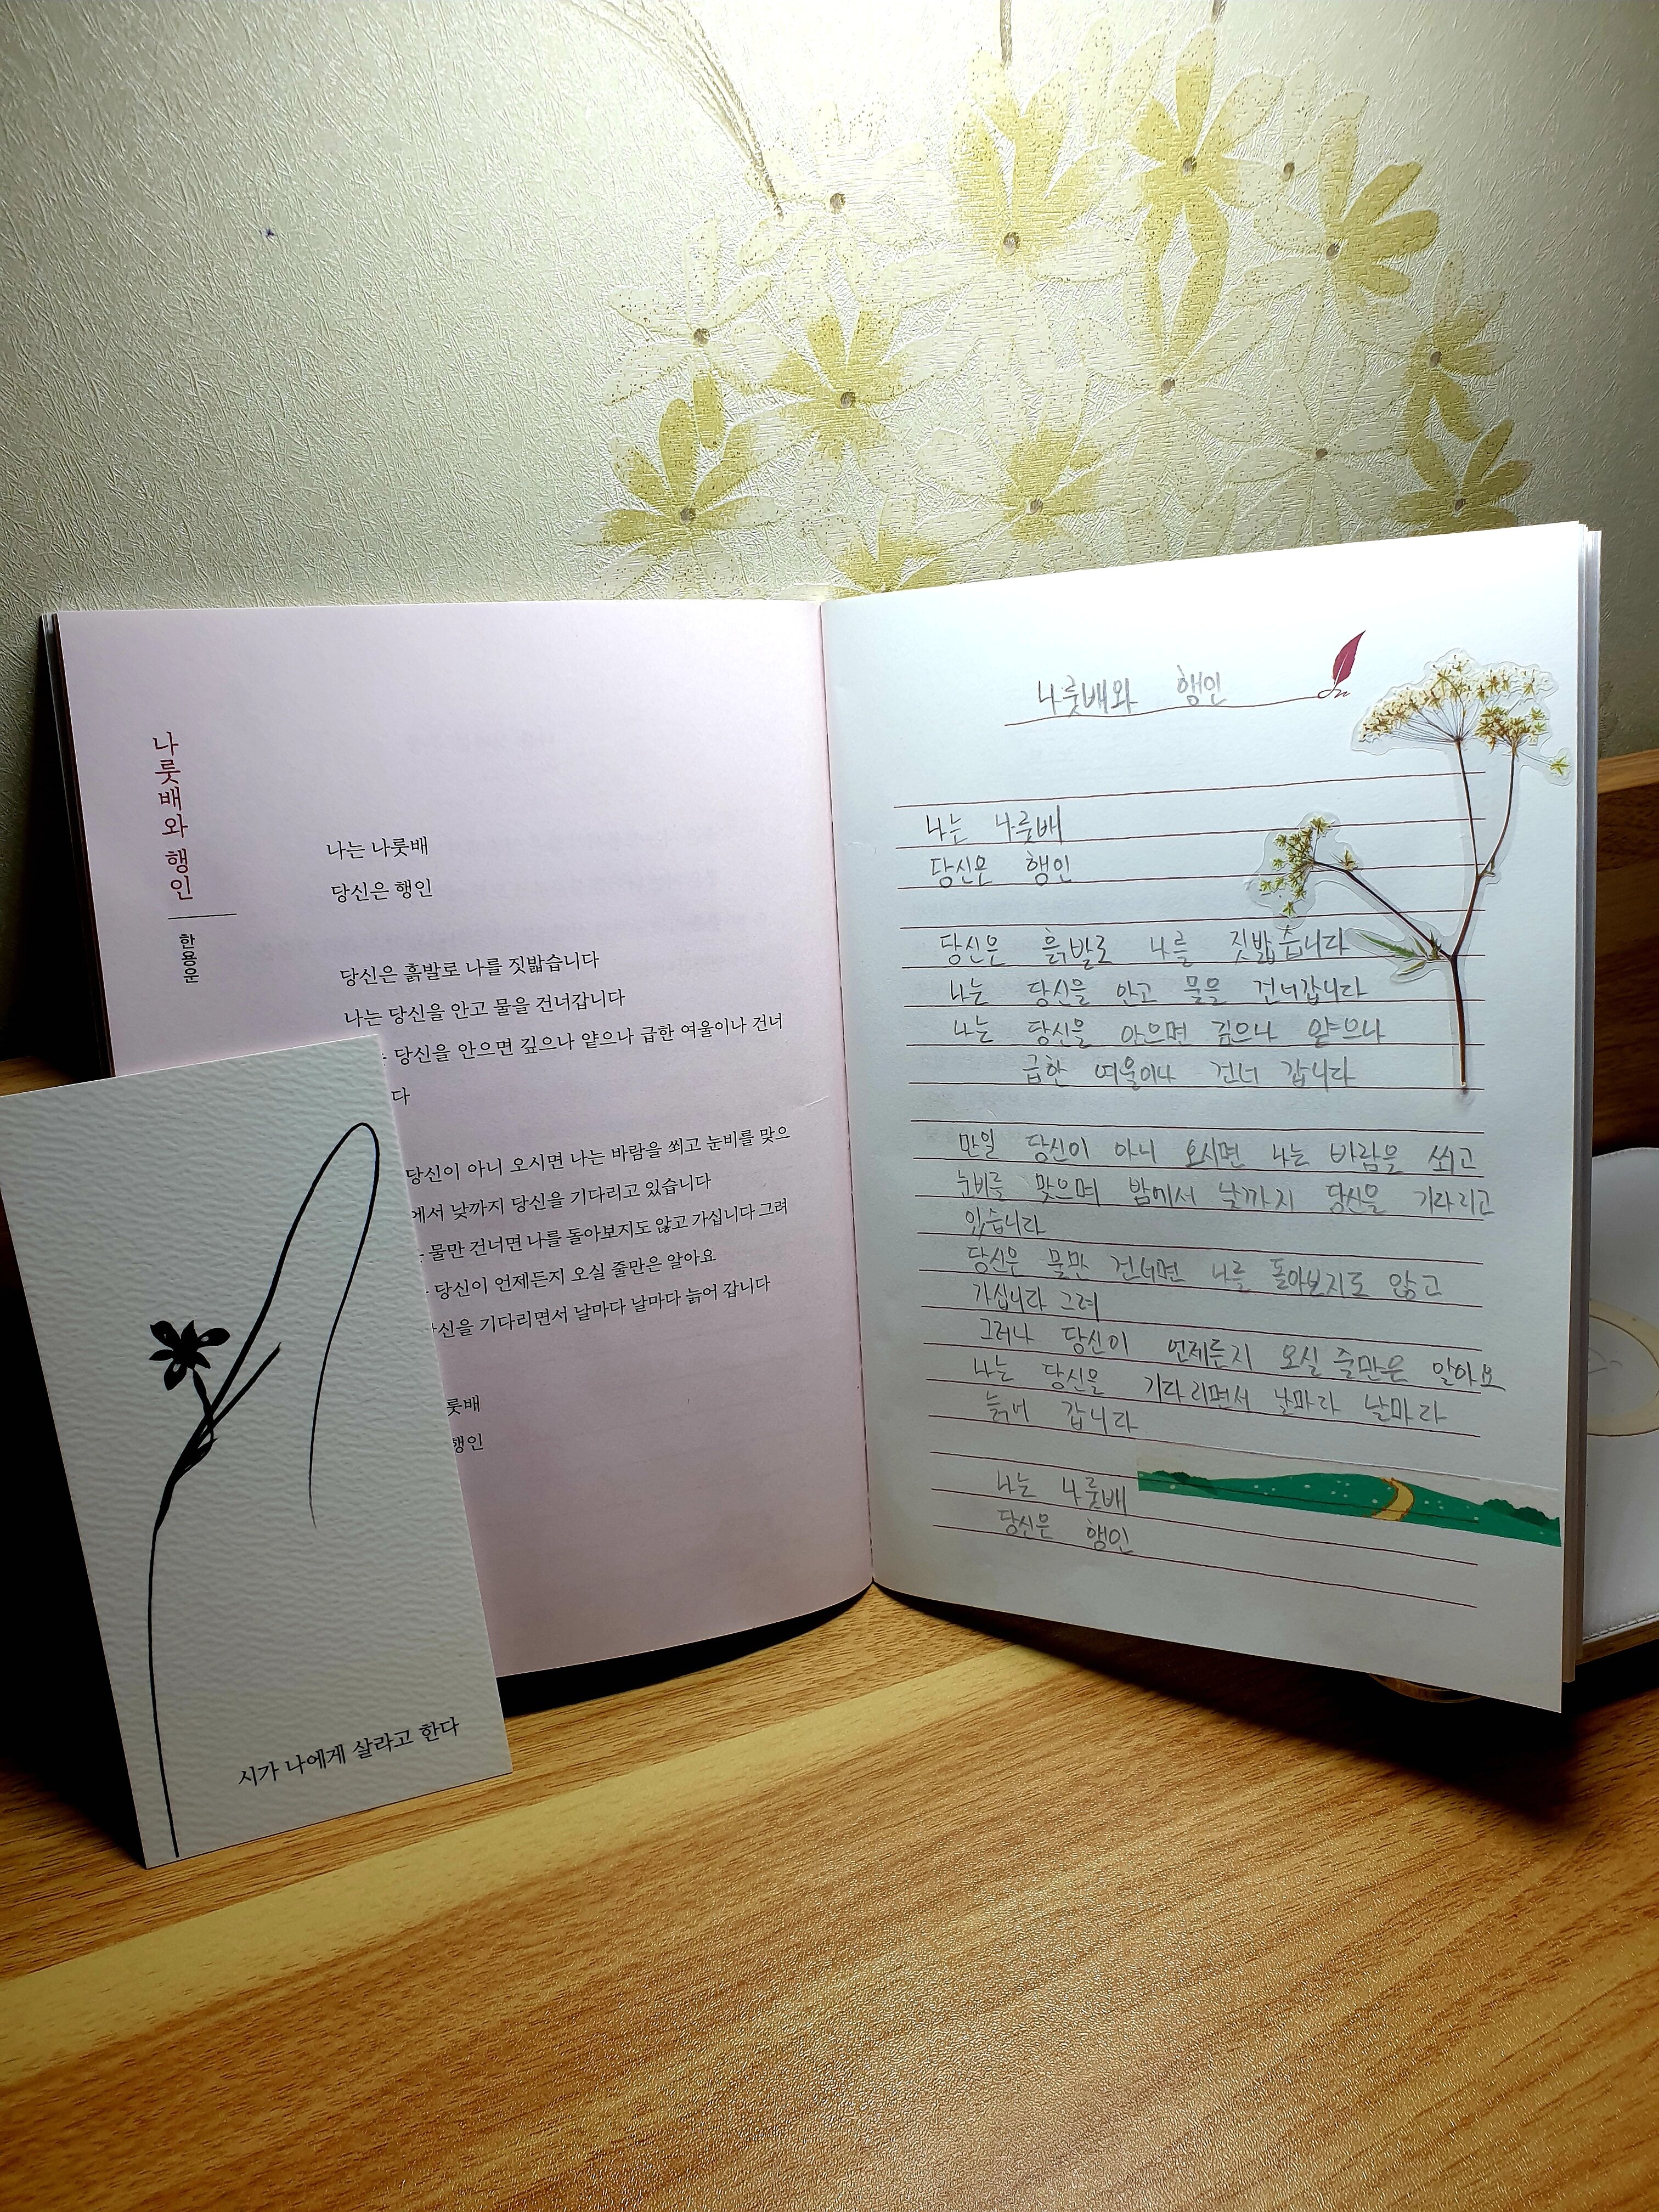 나룻배와 행인
한용운
나는 나룻배
당신은 행인
당신은 흙발로 나를 짓밟습니다
나는 당신을 안고 물을 건너갑니다
당신을 안으면 깊으나 얕으나 급한 여울이나 건너
다
당신이 아니 오시면 나는 바람을 쐬고 눈비를 맞으
에서 낮까지 당신을 기다리고 있습니다
물만 건너면 나를 돌아보지도 않고 가십니다 그려
당신이 언제든지 오실 줄만은 알아요
당신을 기다리면서 날마다 날마다 늙어 갑니다
룻배
행인
시가 나에게 살라고 한다
나룻배와 행인
나는 나룻배
당신은 행인
당신은 흙발로 나를 짓밟습니다
나는 당신을 안고 물을 건너갑니다
나는 당신을 안으면 깊으나 얕으나
급한 여울이나 건너 갑니다
만일 당신이 아니 오시면 나는 바람을 쐬고
눈비를 맞으며 밤에서 낮까지 당신을 기다리고
있습니다
당신은 물만 건너면 나를 돌아보지도 않고
가십니다 그려
그러나 당신이 언제든지 오실 줄만은 알아요
나는 당신을 기다리면서 날마다 날마다
늙어 갑니다
나는 나룻배
당신은 행인